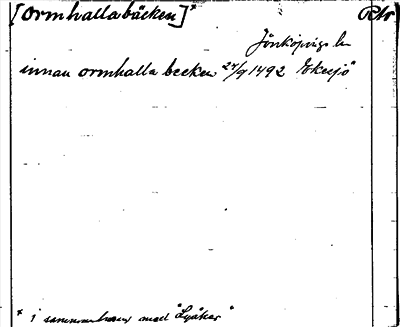 [Ormhallabäcken]* Rtr
Jönköpings ln
innan ormhalla becken 24/9 1492 Ekesjö
* i sammanhang med "Lyåker"